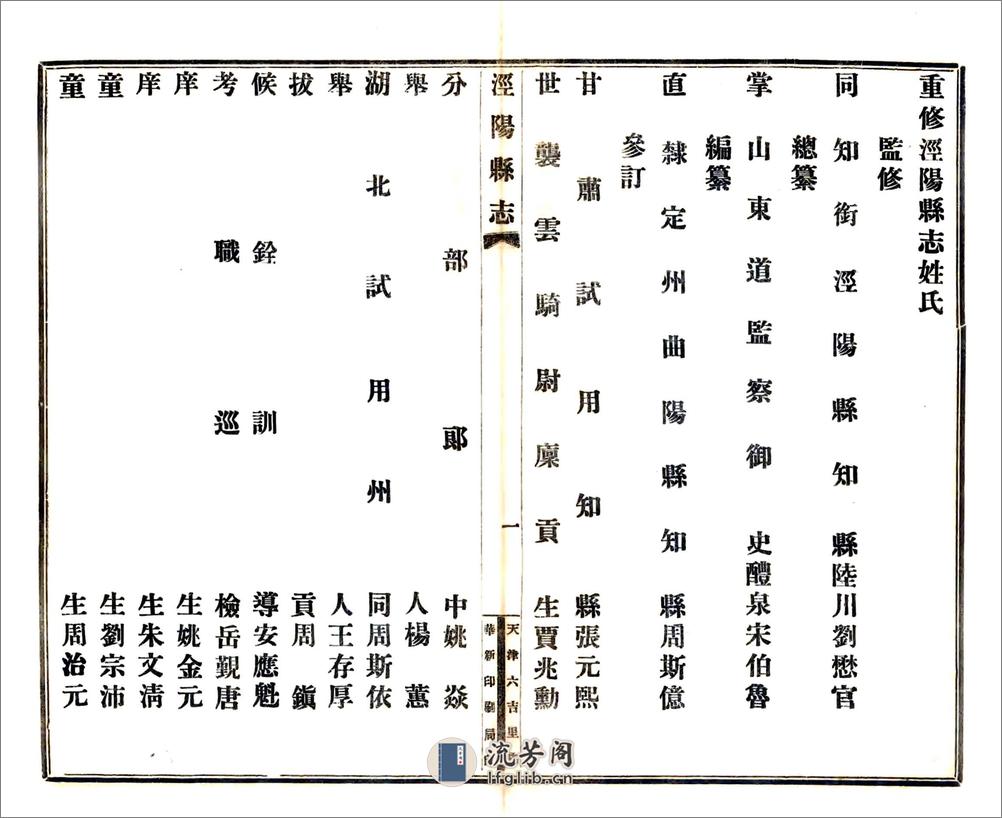 重修涇陽縣志姓氏
監修
同知銜涇陽縣知縣陸川劉懋官
總纂
掌山東道監察御史醴泉宋伯魯
編纂
直隸定州曲陽縣知縣周斯億
參訂
甘肅試用知縣張元熙
世襲雲騎尉廩貢生賈兆勳
涇陽縣志
一
天津六吉里
華新印刷局
分部郎中姚焱
舉人楊蕙
湖北試用州同周斯依
舉人王存厚
拔貢周鎭
候銓訓導安應魁
考職巡檢岳覲唐
庠生姚金元
庠生朱文淸
童生劉宗沛
童生周治元
流芳阁
lfglib.cn